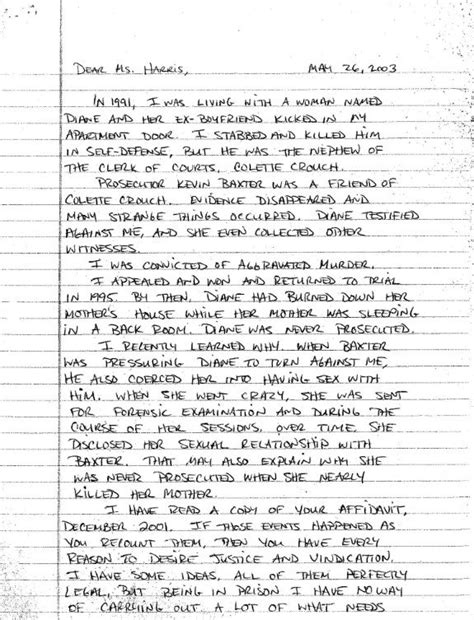 DEAR MS. HARRIS, MAY 26, 2003
IN 1991, I WAS LIVING WITH A WOMAN NAMED
DIANE AND HER EX-BOYFRIEND KICKED IN MY
APARTMENT DOOR. I STABBED AND KILLED HIM
IN SELF-DEFENSE, BUT HE WAS THE NEPHEW OF
THE CLERK OF COURTS, COLETTE CROUCH.
PROSECUTOR KEVIN BAXTER WAS A FRIEND OF
COLETTE CROUCH. EVIDENCE DISAPPEARED AND
MANY STRANGE THINGS OCCURRED. DIANE TESTIFIED
AGAINST ME, AND SHE EVEN COLLECTED OTHER
WITNESSES.
I WAS CONVICTED OF AGGRAVATED MURDER.
I APPEALED AND WON AND RETURNED TO TRIAL
IN 1995. BY THEN, DIANE HAD BURNED DOWN HER
MOTHER'S HOUSE WHILE HER MOTHER WAS SLEEPING
IN A BACK ROOM. DIANE WAS NEVER PROSECUTED.
I RECENTLY LEARNED WHY. WHEN BAXTER
WAS PRESSURING DIANE TO TURN AGAINST ME,
HE ALSO COERCED HER INTO HAVING SEX WITH
HIM. WHEN SHE WENT CRAZY, SHE WAS SENT
FOR FORENSIC EXAMINATION AND DURING THE
COURSE OF HER SESSIONS, OVER TIME, SHE
DISCLOSED HER SEXUAL RELATIONSHIP WITH
BAXTER. THAT MAY ALSO EXPLAIN WHY SHE
WAS NEVER PROSECUTED WHEN SHE NEARLY
KILLED HER MOTHER.
I HAVE READ A COPY OF YOUR AFFIDAVIT,
DECEMBER 2001. IF THOSE EVENTS HAPPENED AS
YOU RECOUNT THEM, THEN YOU HAVE EVERY
REASON TO DESIRE JUSTICE AND VINDICATION.
I HAVE SOME IDEAS, ALL OF THEM PERFECTLY
LEGAL, BUT BEING IN PRISON I HAVE NO WAY
OF CARRYING OUT A LOT OF WHAT NEEDS